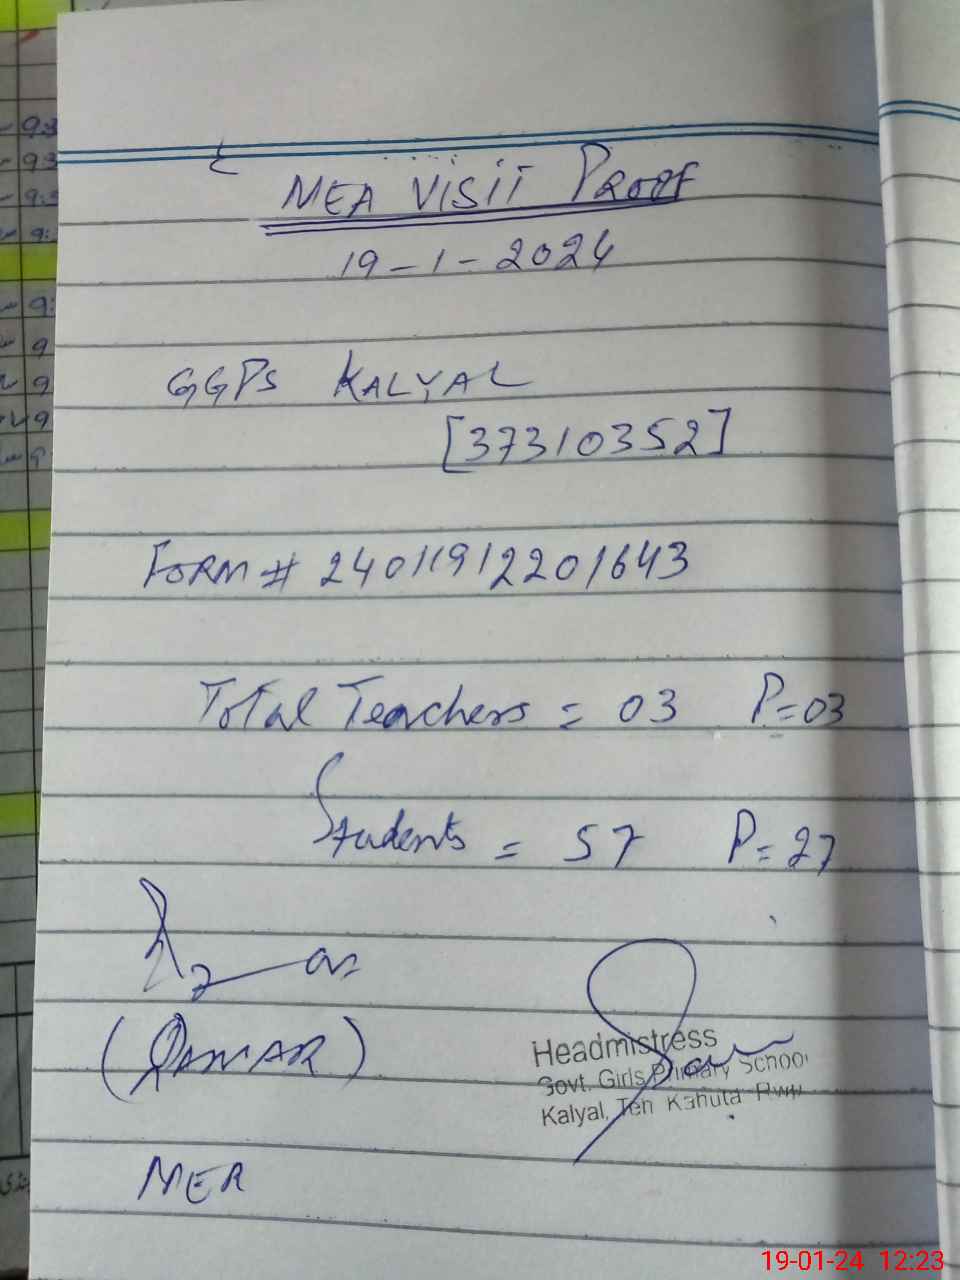 MEA VISIT PROOF
19-1-2024
GGPS KALYAL
[37310352]
FORM # 24011912201643
Total Teachers = 03 P=03
Students = 57 P=27
(QAMAR)
Headmistress
Govt. Girls Primary School
Kalyal, Teh Kahuta Rwp
MEA
19-01-24 12:23